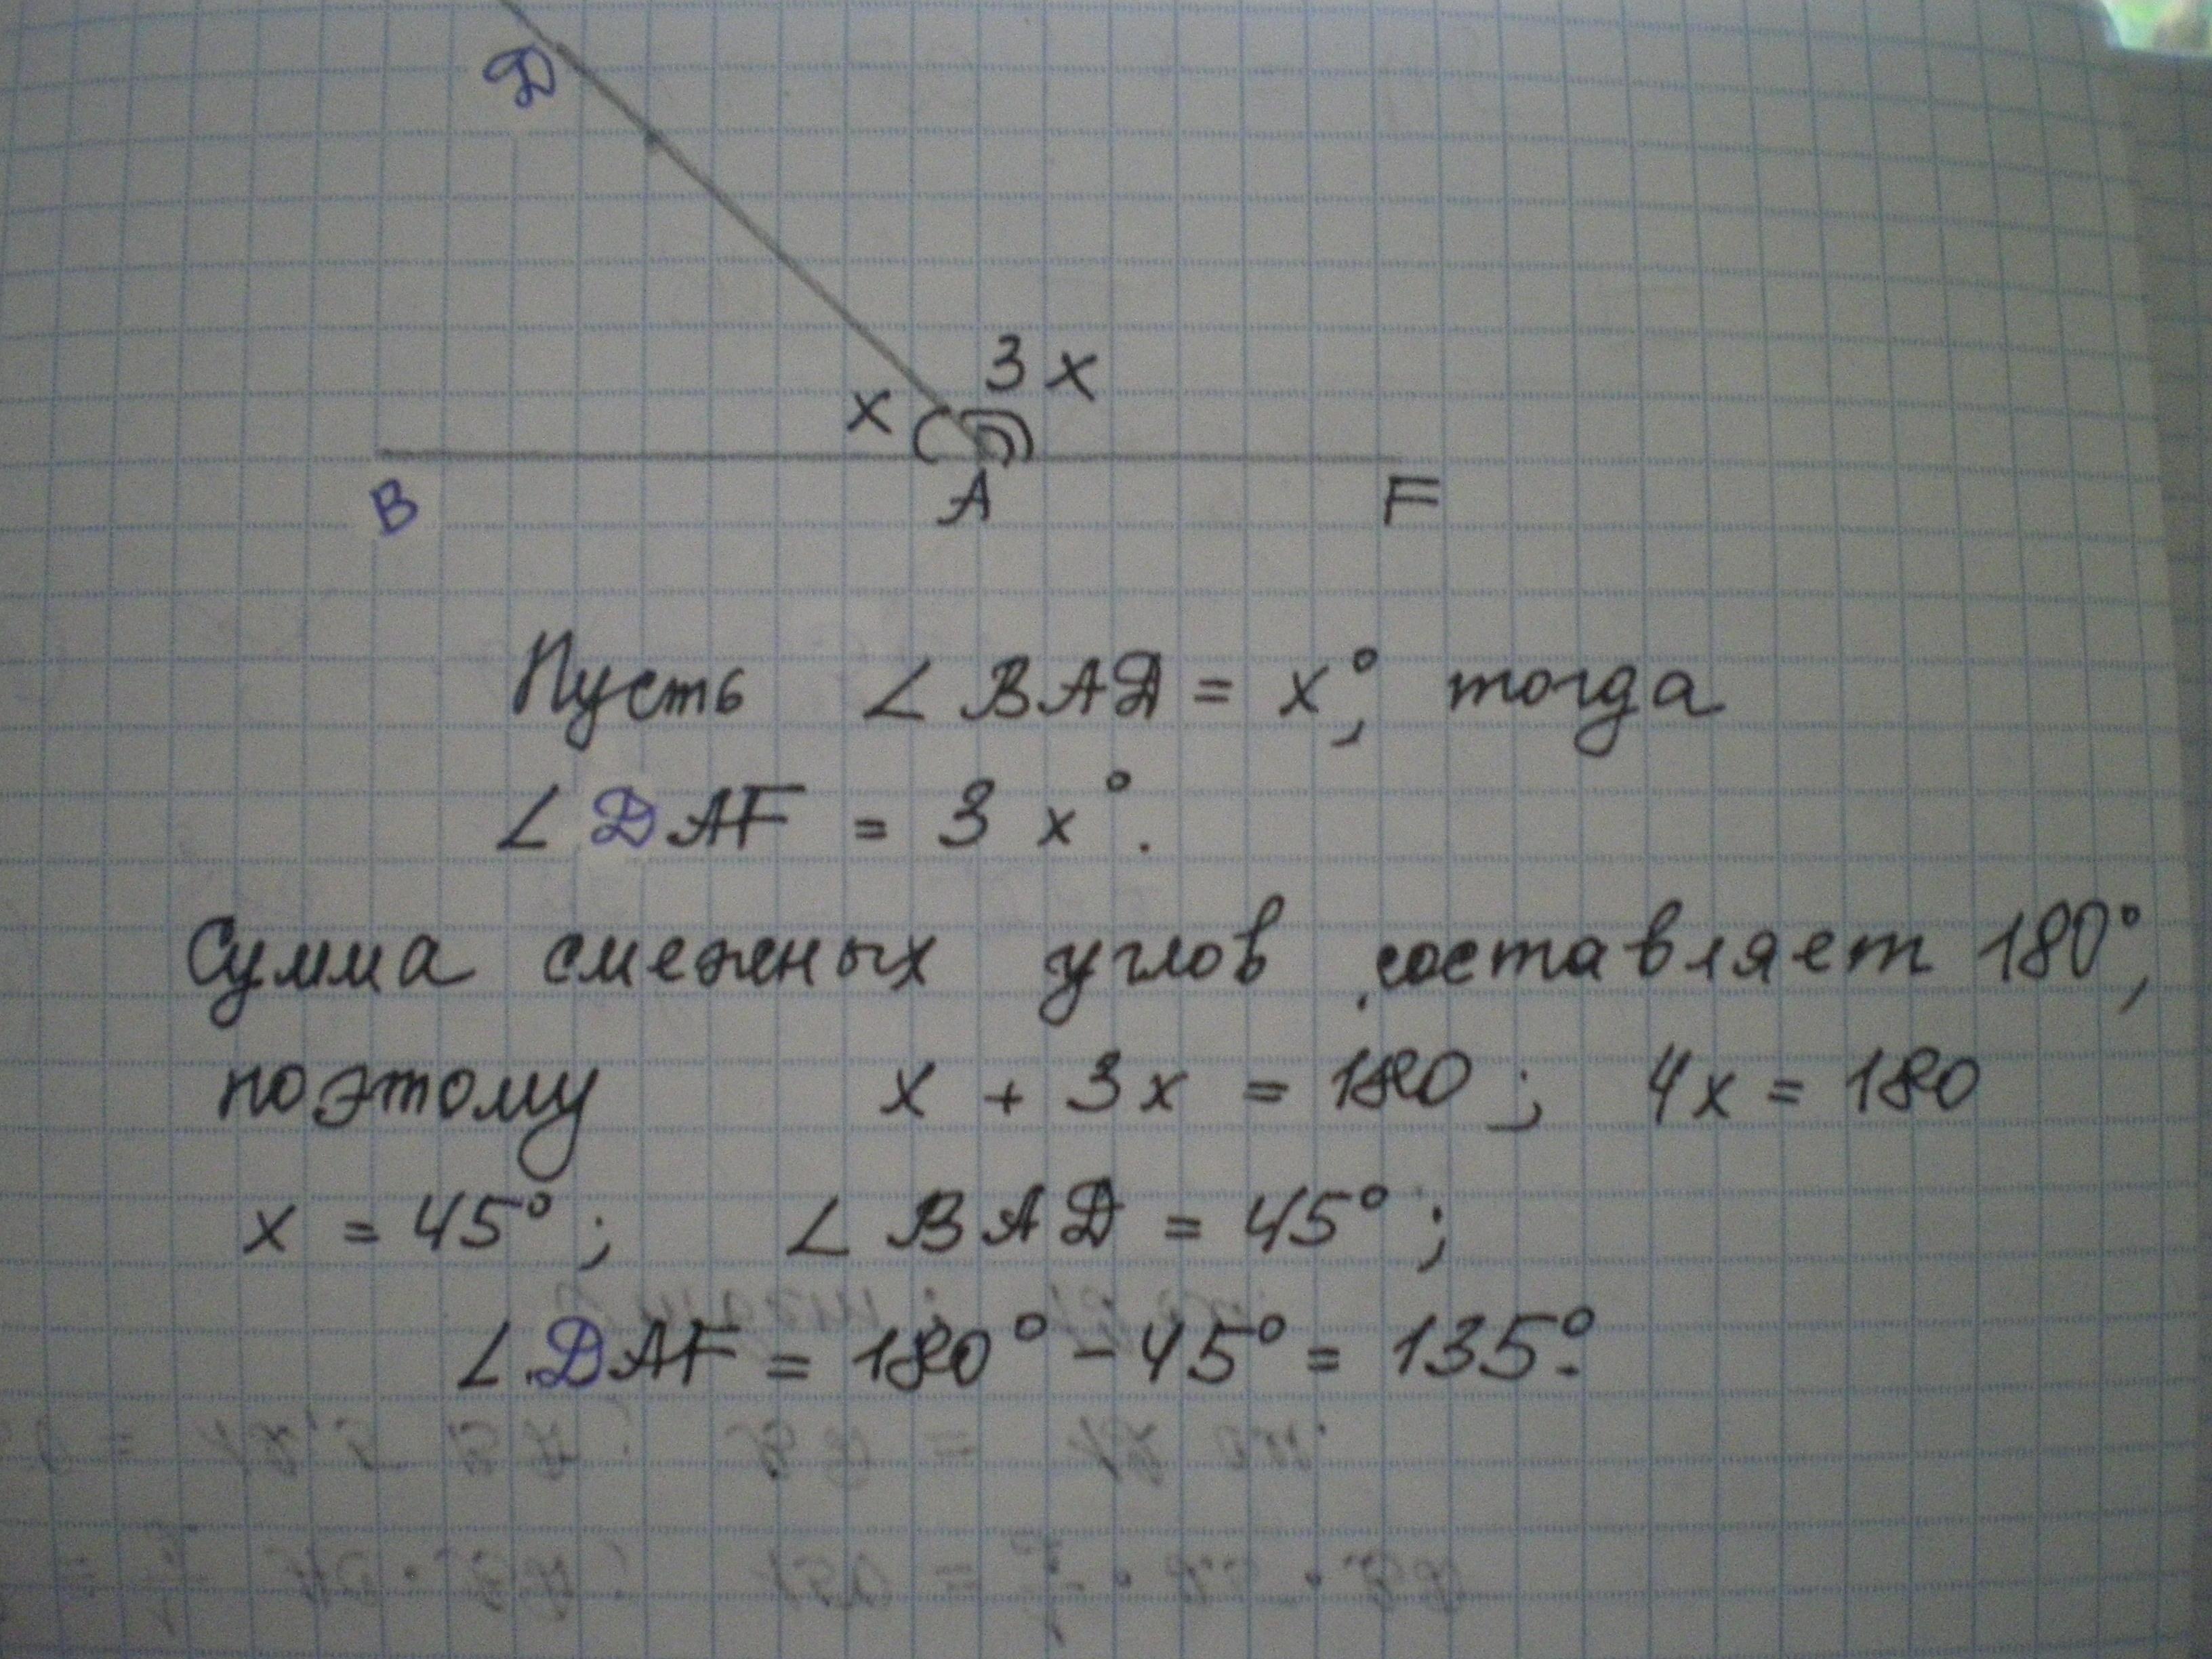 D
3x
x
B A F
Пусть ∠BAD = x°, тогда
∠DAF = 3x°.
Сумма смежных углов составляет 180°,
поэтому x + 3x = 180; 4x = 180
x = 45°; ∠BAD = 45°;
∠DAF = 180° - 45° = 135°.